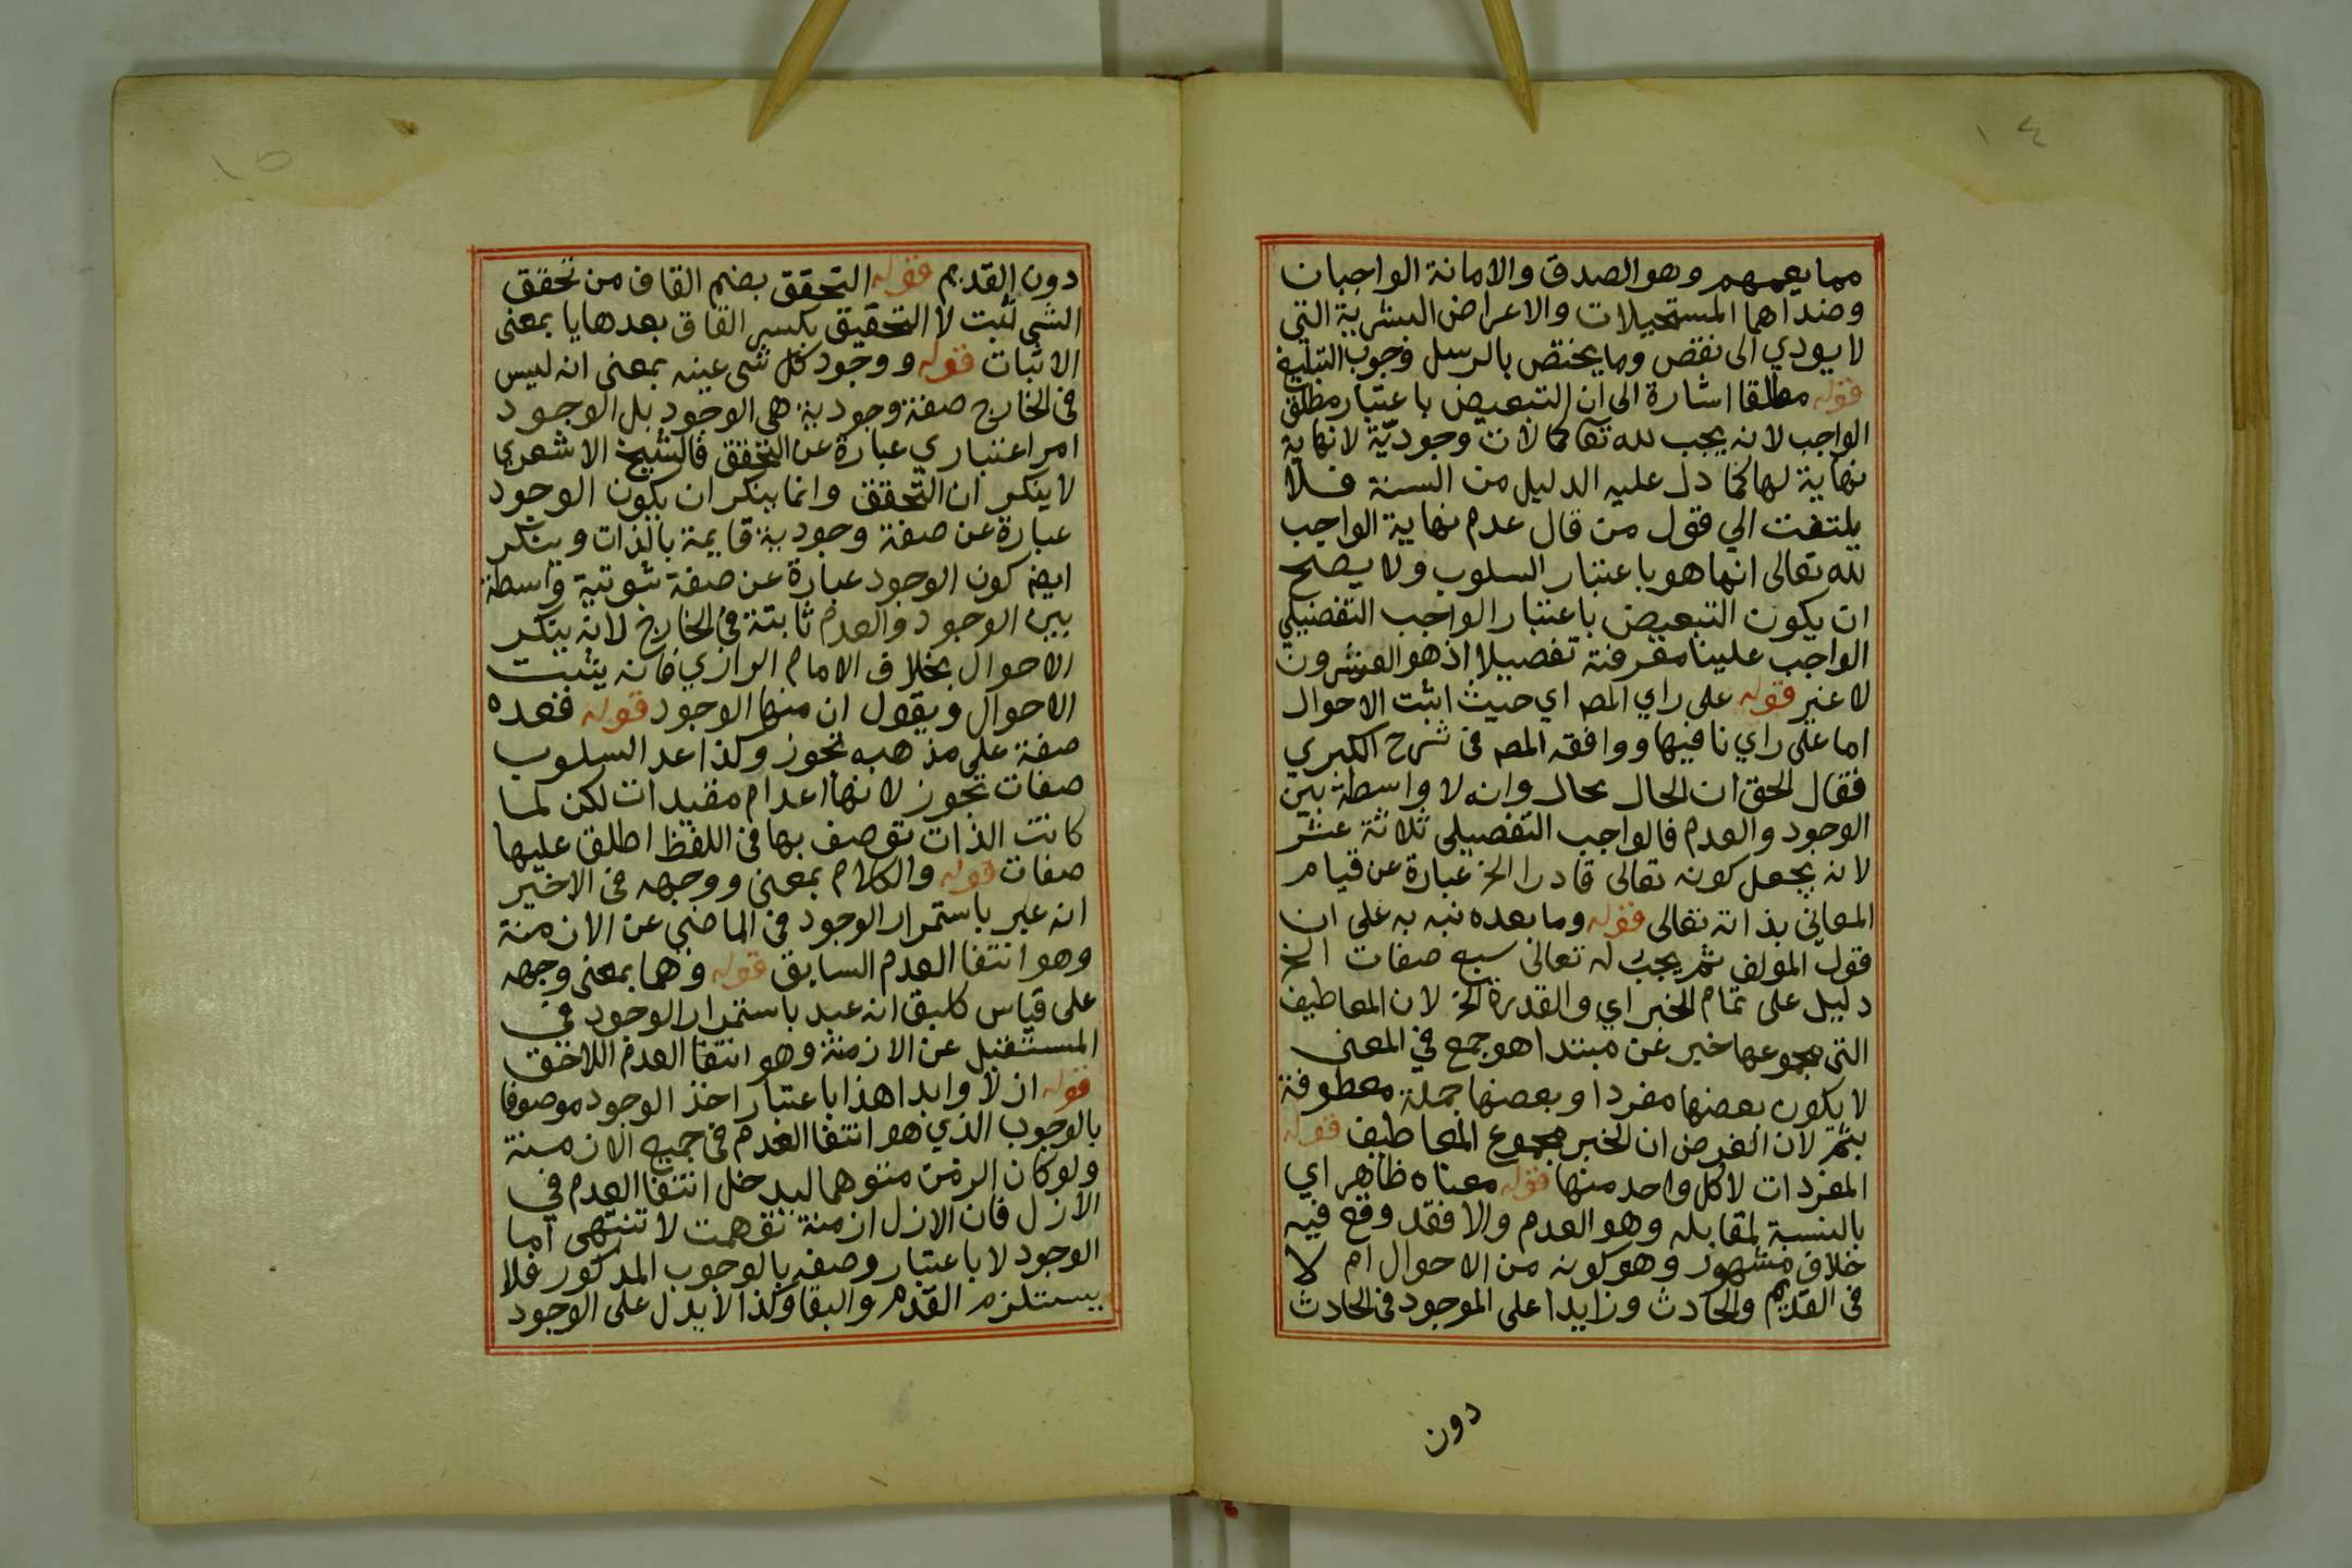 ١٤
مما يعمهم وهو الصدق والامانة الواجبان
وضداهما المستحيلات والاعراض البشرية التي
لا يودي الى نقص وما يختص بالرسل وجوب التبليغ
قوله مطلقا اشارة الى ان التبعيض باعتبار مطلق
الواجب لانه يجب لله تعا كمالات وجوديّة لا نهاية
نهاية لها كما دل عليه الدليل من السنة فلا
يلتفت الي قول من قال عدم نهاية الواجب
لله تعالى انما هو باعتبار السلوب ولا يصلح
ان يكون التبعيض باعتبار الواجب التفضيلي
الواجب علينا معرفته تفصيلا اذ هو العشرون
لا غير قوله على راي المص اي حيث اثبت الاحوال
اما على راي نافيها ووافقه المص في شرح الكبري
فقال الحق ان الحال محال وانه لا واسطة بين
الوجود والعدم فالواجب التفصيلي ثلاثة عشر
لانه يجعل كونه تعالى قادرا الخ عبارة عن قيام
المعاني بذاته تعالى قوله وما بعده نبه به على ان
قول المولف ثم يجب له تعالى سبع صفات الخ
دليل على تمام الخبر اي والقدرة الخ لان المعاطيف
التي مجموعها خبر عن مبتدا هو جمع في المعنى
لا يكون بعضها مفردا وبعضها جملة معطوفة
بثم لان الغرض ان الخبر مجموع المعاطيف قوله
المفردات لا كل واحد منها قوله معناه ظاهر اي
بالنسبة لمقابله وهو العدم والا فقد وقع فيه
خلاف مشهور وهو كونه من الاحوال ام لا
في القديم والحادث وزايدا على الموجود في الحادث
دون
١٥
دون القديم قوله التحقق بضم القاف من تحقق
الشي ثبت لا التحقيق بكسر القاف بعدها يا بمعنى
الاثبات قوله ووجود كل شى عينه بمعنى انه ليس
في الخارج صفة وجودية هي الوجود بل الوجود
امر اعتباري عبارة عن التحقق فالشيخ الاشعري
لا ينكر ان التحقق وانما ينكر ان يكون الوجود
عبارة عن صفة وجودية قايمة بالذات وينكر
ايض كون الوجود عبارة عن صفة ثبوتية واسطة
بين الوجود والعدم ثابتة في الخارج لانه ينكر
الاحوال بخلاف الامام الرازي فانه يثبت
الاحوال ويقول ان منها الوجود قوله فعده
صفة على مذهبه تجوز وكذا عد السلوب
صفات تجوز لانها اعدام مقيدات لكن لما
كانت الذات توصف بها في اللفظ اطلق عليها
صفات قوله والكلام بمعنى ووجهه في الاخير
انه عبر باستمرار الوجود في الماضي عن الازمنة
وهو انتفا العدم السابق قوله وهما بمعنى وجهه
على قياس كلبق انه عبر باستمرار الوجود في
المستقبل عن الازمنة وهو انتفا العدم اللاحق
قوله ازلا وابدا هذا باعتبار اخذ الوجود موصوفا
بالوجوب الذي هو انتفا العدم في جميع الازمنة
ولو كان الزمن متوهما ليدخل انتفا العدم في
الازل فان الازل ازمنة توهمت لا تنتهى اما
الوجود لا باعتبار وصفه بالوجوب المذكور فلا
يستلزم القدم والبقا وكذا لا يدل على الوجود